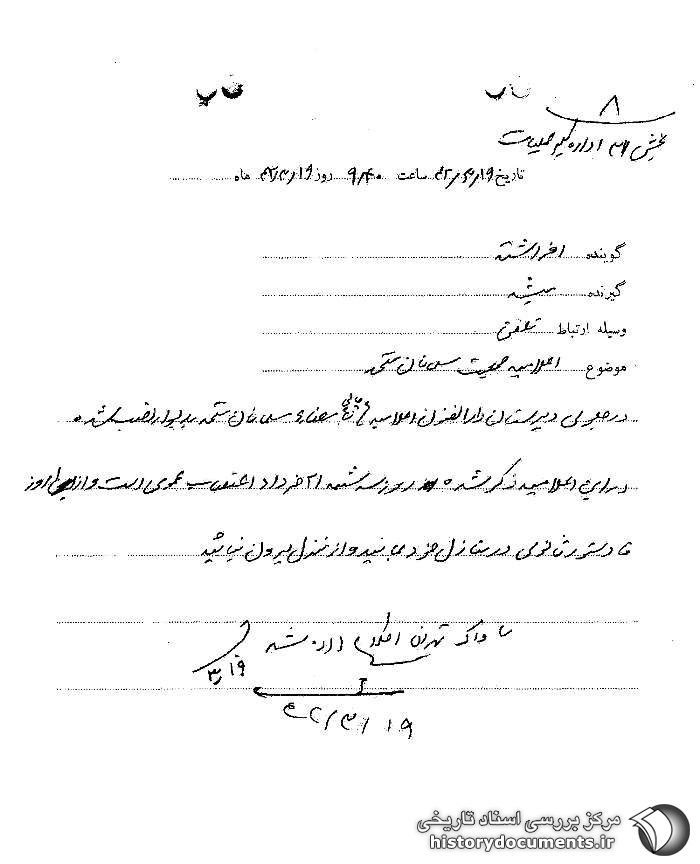 ۸
بخش ۳۱ اداره کل عملیات
تاریخ ۴۲/۳/۱۹ ساعت ۹/۴۰ روز ۴۲/۳/۱۹ ماه
گوینده افراشته
گیرنده
وسیله ارتباط تلفن
موضوع اعلامیه جمعیت مسلمانان متحد
در جلوی دبیرستان دارالفنون اعلامیه بامضاء مسلمانان متحد بدیوار نصب شده
در این اعلامیه ذکر شده روز سه شنبه ۲۱ خرداد اعتصاب عمومی است و از این روز
تا دستور ثانوی در منازل خود بمانید و از منزل بیرون نیائید
ساواک تهران اعلام داده شد
۳/۱۹
۴۲/۳/۱۹
مرکز بررسی اسناد تاریخی
historydocuments.ir